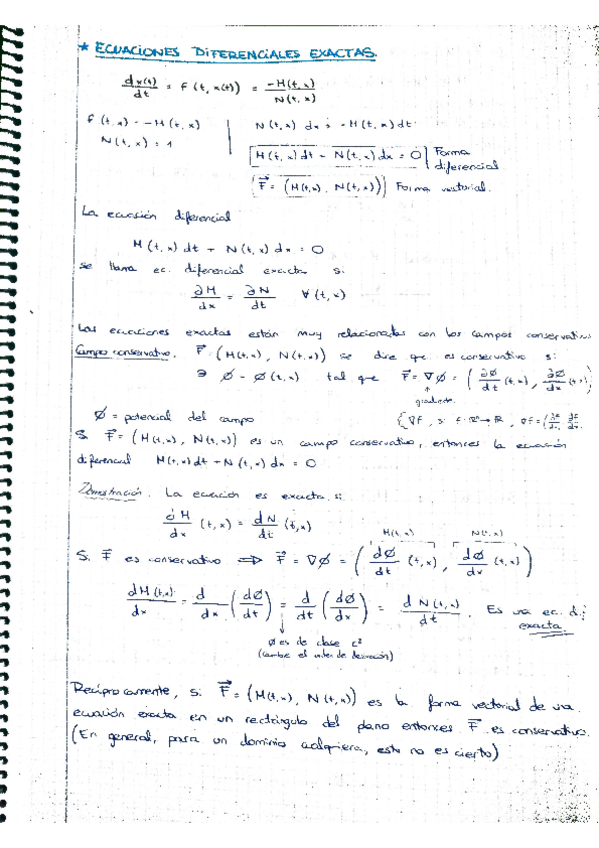 * ECUACIONES DIFERENCIALES EXACTAS.
dx(t)/dt = f(t, x(t)) = -M(t,x)/N(t,x)
f(t,x) = -M(t,x) | N(t,x) dx = -M(t,x) dt
N(t,x) = 1 | M(t,x) dt + N(t,x) dx = 0 | Forma diferencial
F⃗ = (M(t,x), N(t,x)) | Forma vectorial.
La ecuación diferencial
M(t,x) dt + N(t,x) dx = 0
se llama ec. diferencial exacta si
∂M/dx = ∂N/dt ∀(t,x)
Las ecuaciones exactas están muy relacionadas con los campos conservativos
Campo conservativo. F⃗ = (M(t,x), N(t,x)) se dice que es conservativo si
∃ ø = ø(t,x) tal que F⃗ = ∇ø = (∂ø/dt (t,x), ∂ø/dx (t,x))
gradiente.
ø = potencial del campo
Si F⃗ = (M(t,x), N(t,x)) es un campo conservativo, entonces la ecuación
diferencial M(t,x) dt + N(t,x) dx = 0
Demostración. La ecuación es exacta si
∂M/dx (t,x) = dN/dt (t,x)
M(t,x) N(t,x)
Si F⃗ es conservativo ⟹ F⃗ = ∇ø = (dø/dt (t,x), dø/dx (t,x))
dM(t,x)/dx = d/dx (dø/dt) = d/dt (dø/dx) = dN(t,x)/dt . Es una ec. dif
exacta
ø es de clase C²
(cambie el orden de derivación)
Recíprocamente, si F⃗ = (M(t,x), N(t,x)) es la forma vectorial de una
ecuación exacta en un rectángulo del plano entonces F⃗ es conservativo.
(En general, para un dominio cualquiera, esto no es cierto)